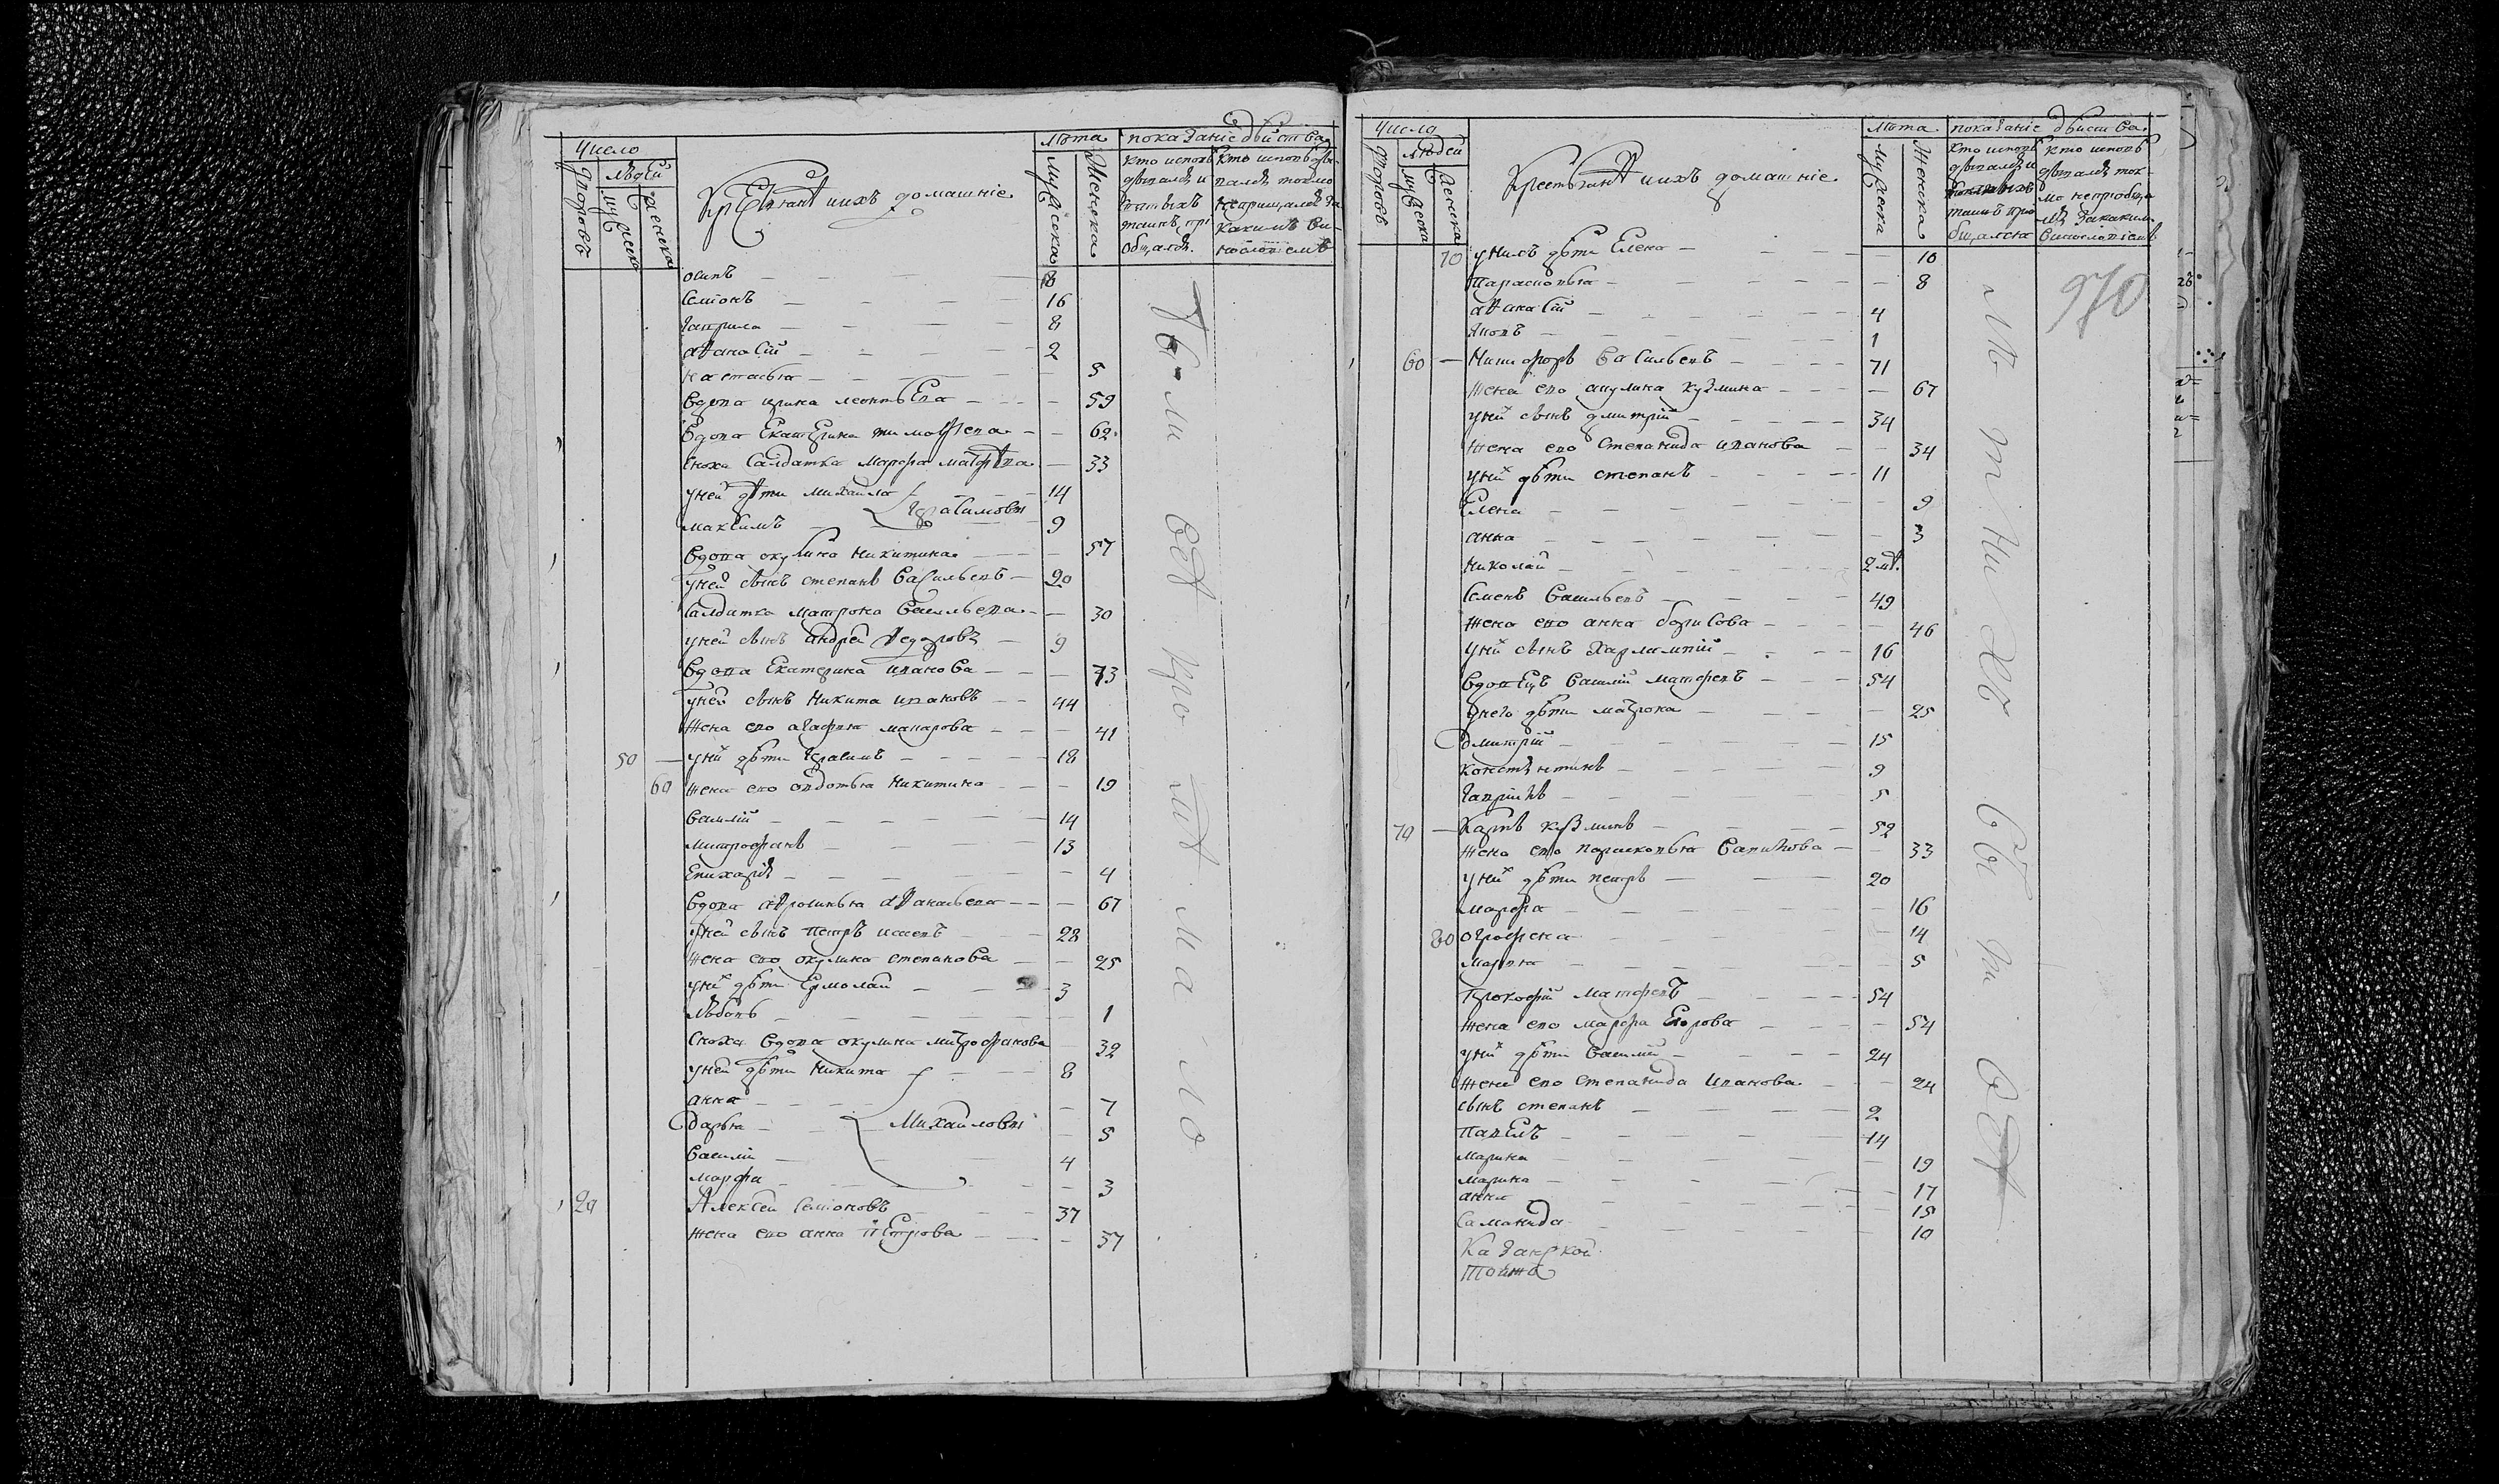 Число
Людей
Дворовъ
мужеска
женска
Крестьянѣ и ихъ домашнїе
Лѣта
Мужеска
Женска
показанїе дѣйства
Кто исповѣдывался и святыхъ таинъ прїобщался
Кто исповѣдывался токмо
осипъ 18
Семїонъ 16
Гаврила 8
аѳанасїй 2
настасья 5
Вдова ирина леонтьева 59
Вдова Екатерина тимоѳеева 62
Сноха Салдатка марфа матфѣева 33
у ней дѣти михаила 14
Герасимовы
максимъ 9
Вдова окулина Никитина 57
у ней сынъ степанъ Васильевъ 20
Салдатка матрона Васильева 30
у ней сынъ андрей Ѳедоровъ 9
Вдова Екатерина иванова 73
у ней сынъ Никита ивановъ 44
жена его агафья макарова 41
50 у нихъ дѣти Герасимъ 18
60 жена его овдотья Никитина 19
Василїй 14
митрофанъ 13
Епихарїя 4
Вдова аѳросинья аѳанасьева 67
у ней сынъ петръ исаевъ 28
жена его окулина степанова 25
у нихъ дѣти Ермолай 3
Любовь 1
Сноха Вдова окулина митрофанова 32
у ней дѣти Никита 8
анна 7
Дарья Михайловы 5
Василїй 4
марфа 3
20 Алексей Семїоновъ 37
жена его анна петрова 37
Число
Людей
Дворовъ
мужеска
женска
Крестьянѣ и ихъ домашнїе
Лѣта
Мужеска
Женска
показанїе дѣйства
70 у нихъ дѣти Елена 10
Парасковья 8
аѳанасїй 4
Яковъ 1
60 Никифоръ Васильевъ 71
жена его акулина кузмина 67
у нихъ сынъ дмитрїй 34
жена его Степанида иванова 34
у нихъ дѣти степанъ 11
Елена 9
анна 3
Николай 2 мѣ.
Семенъ Васильевъ 49
жена его анна борисова 46
у нихъ сынъ Харлампїй 16
Вдовецъ Василїй матфевъ 54
у него дѣти матрона 25
Дмитрїй 15
констянтинъ 9
Гаврїилъ 5
70 Карпъ кузминъ 52
жена его парасковья 33
у нихъ дѣти петръ 20
марфа 16
80 огрофена 14
марья 5
Прокофїй матфевъ 54
жена его марфа Егорова 54
у нихъ дѣти Василїй 24
жена его степанида иванова 24
сынъ степанъ 2
Павелъ 14
марина 19
марина 17
анна 15
Саманида 10
Казанской
970